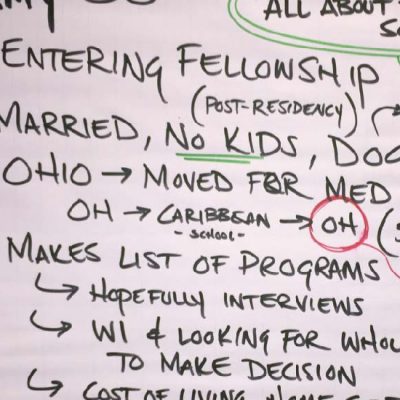 ALL ABOUT
ENTERING FELLOWSHIP
(POST-RESIDENCY)
MARRIED, NO KIDS,
OHIO → MOVED FOR MED
OH → CARIBBEAN → OH (
- SCHOOL -
MAKES LIST OF PROGRAMS
↳ HOPEFULLY INTERVIEWS
↳ WI & LOOKING FOR
TO MAKE DECISION
↳ COST OF LIVING,